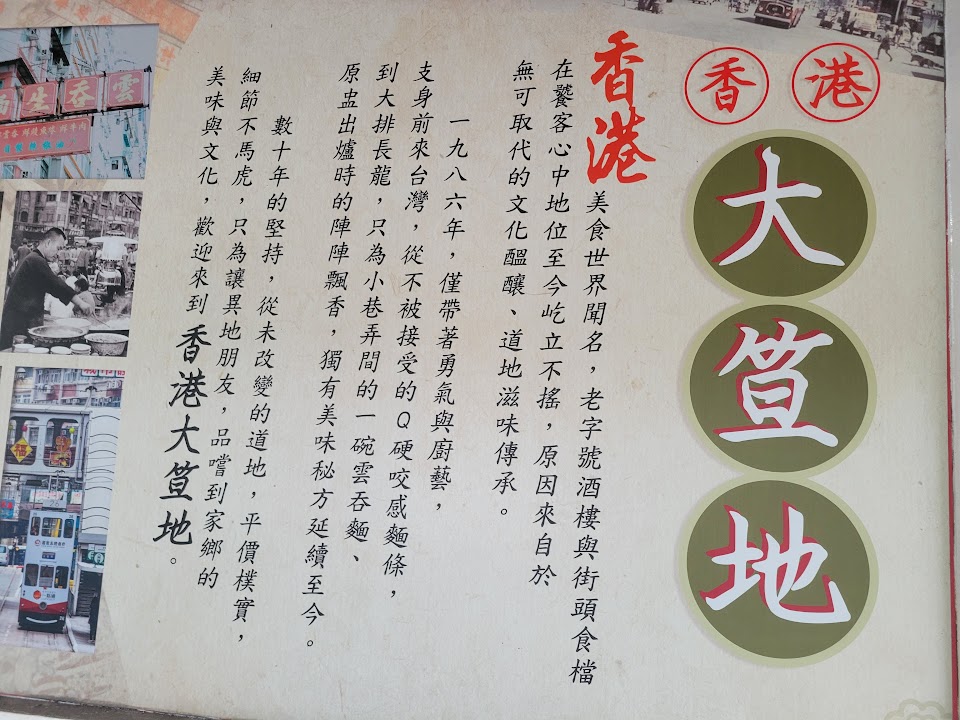 香港
大笪地
香港美食世界聞名，老字號酒樓與街頭食檔
在饕客心中地位至今屹立不搖，原因來自於
無可取代的文化醞釀、道地滋味傳承。
一九八六年，僅帶著勇氣與廚藝，
支身前來台灣，從不被接受的Q硬咬感麵條，
到大排長龍，只為小巷弄間的一碗雲吞麵、
原盅出爐時的陣陣飄香，獨有美味秘方延續至今。
數十年的堅持，從未改變的道地，平價樸實，
細節不馬虎，只為讓異地朋友，品嚐到家鄉的
美味與文化，歡迎來到香港大笪地。
雲吞生
福